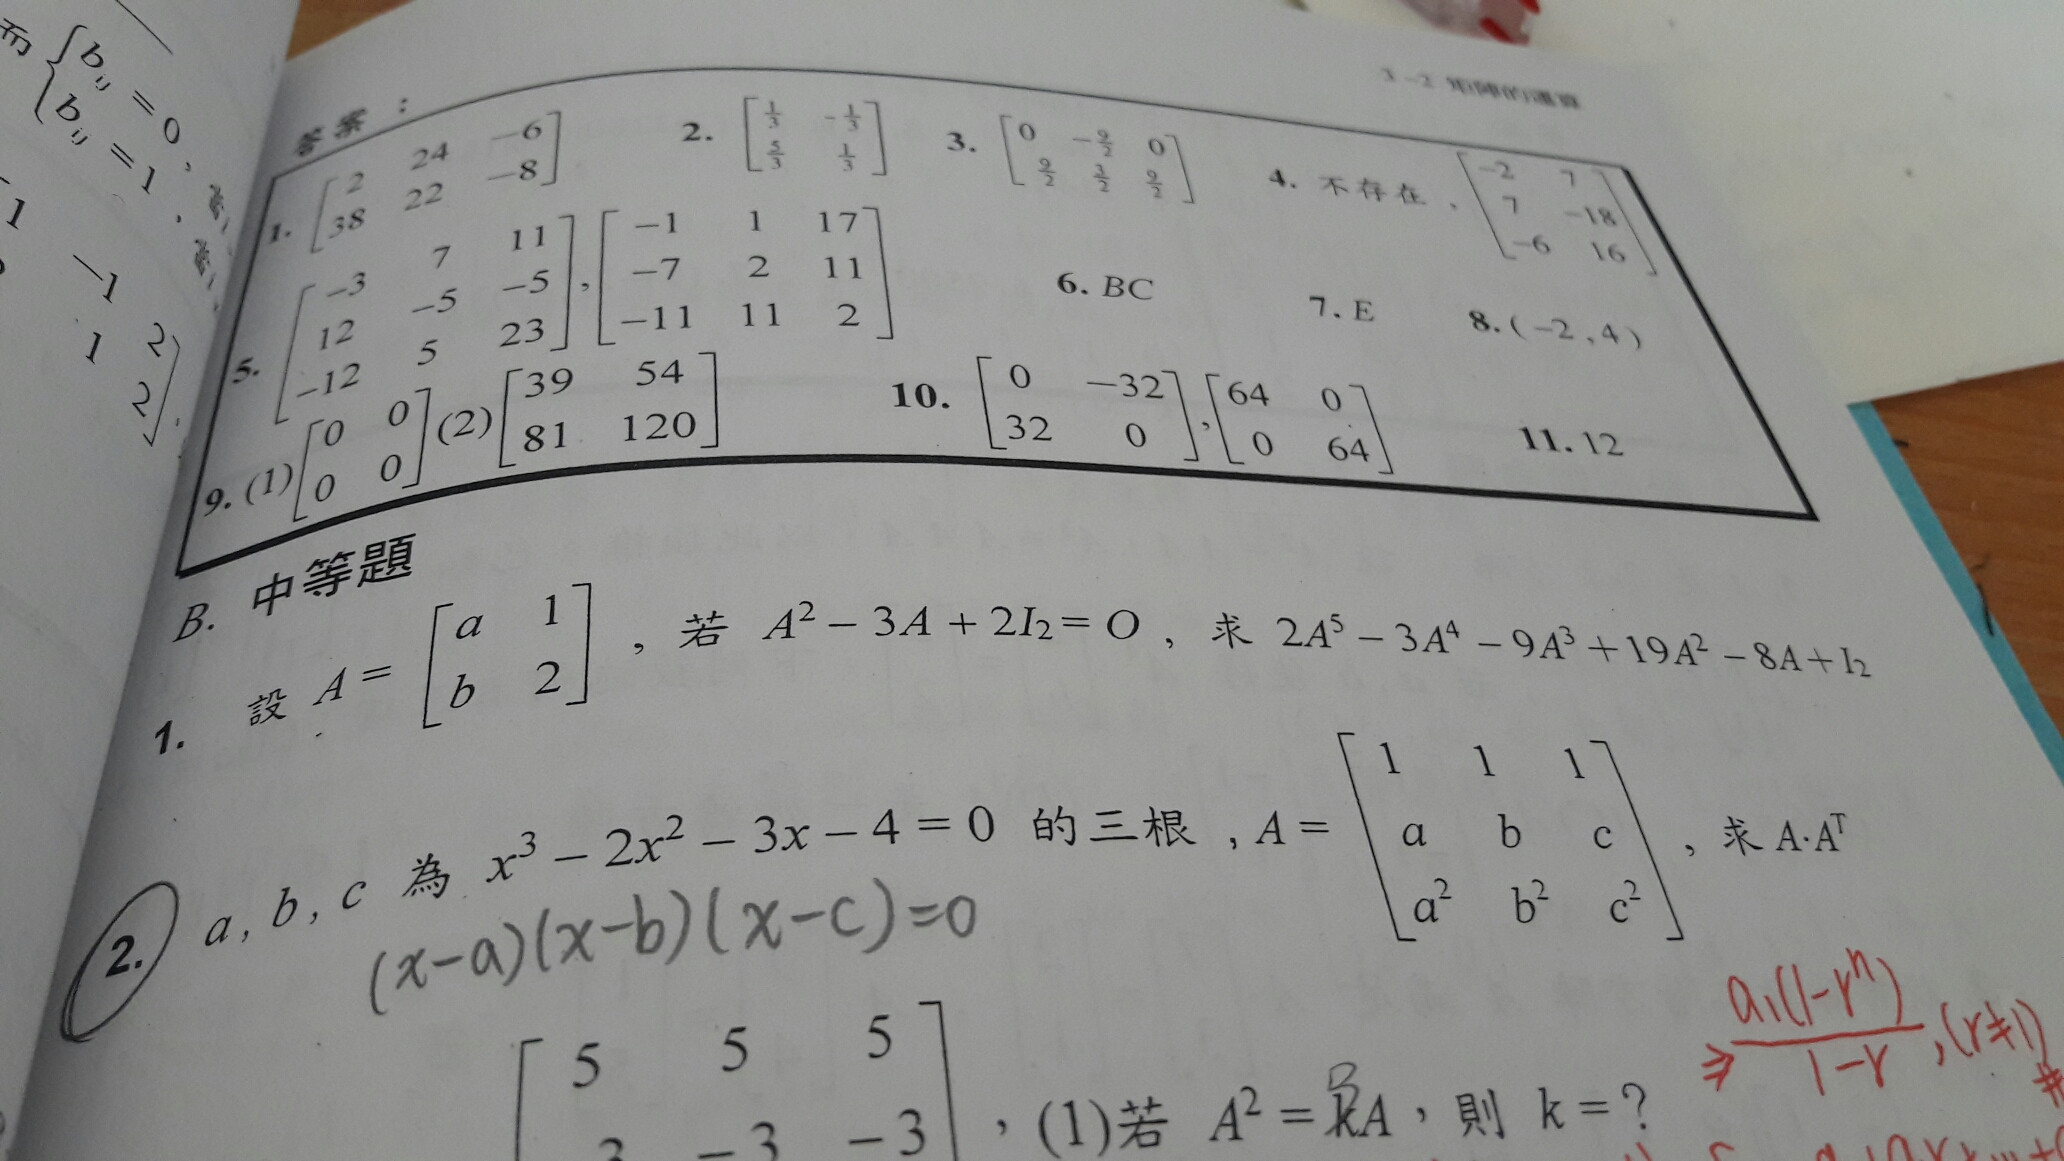 而 { b_ij = 0,
b_ij = 1,
-1 2
1 2
3-2 矩陣的運算
答案：
1. [2 24 -6; 38 22 -8] 2. [1/3 -1/3; 5/3 1/3] 3. [0 -9/2 0; 9/2 3/2 9/2] 4. 不存在， [-2 7; 7 -18; -6 16]
5. [-3 7 11; 12 -5 -5; -12 5 23], [-1 1 17; -7 2 11; -11 11 2] 6. BC 7. E 8. (-2, 4)
9. (1) [0 0; 0 0] (2) [39 54; 81 120] 10. [0 -32; 32 0], [64 0; 0 64] 11. 12
B. 中等題
1. 設 A = [a 1; b 2]，若 A² − 3A + 2I₂ = O，求 2A⁵ − 3A⁴ − 9A³ + 19A² − 8A + I₂
2. a, b, c 為 x³ − 2x² − 3x − 4 = 0 的三根，A = [1 1 1; a b c; a² b² c²]，求 A·Aᵀ
(x-a)(x-b)(x-c)=0
⇒ a₁(1-rⁿ)/(1-r), (r≠1) #
[5 5 5; -3 -3]，(1)若 A² = kA，則 k = ?